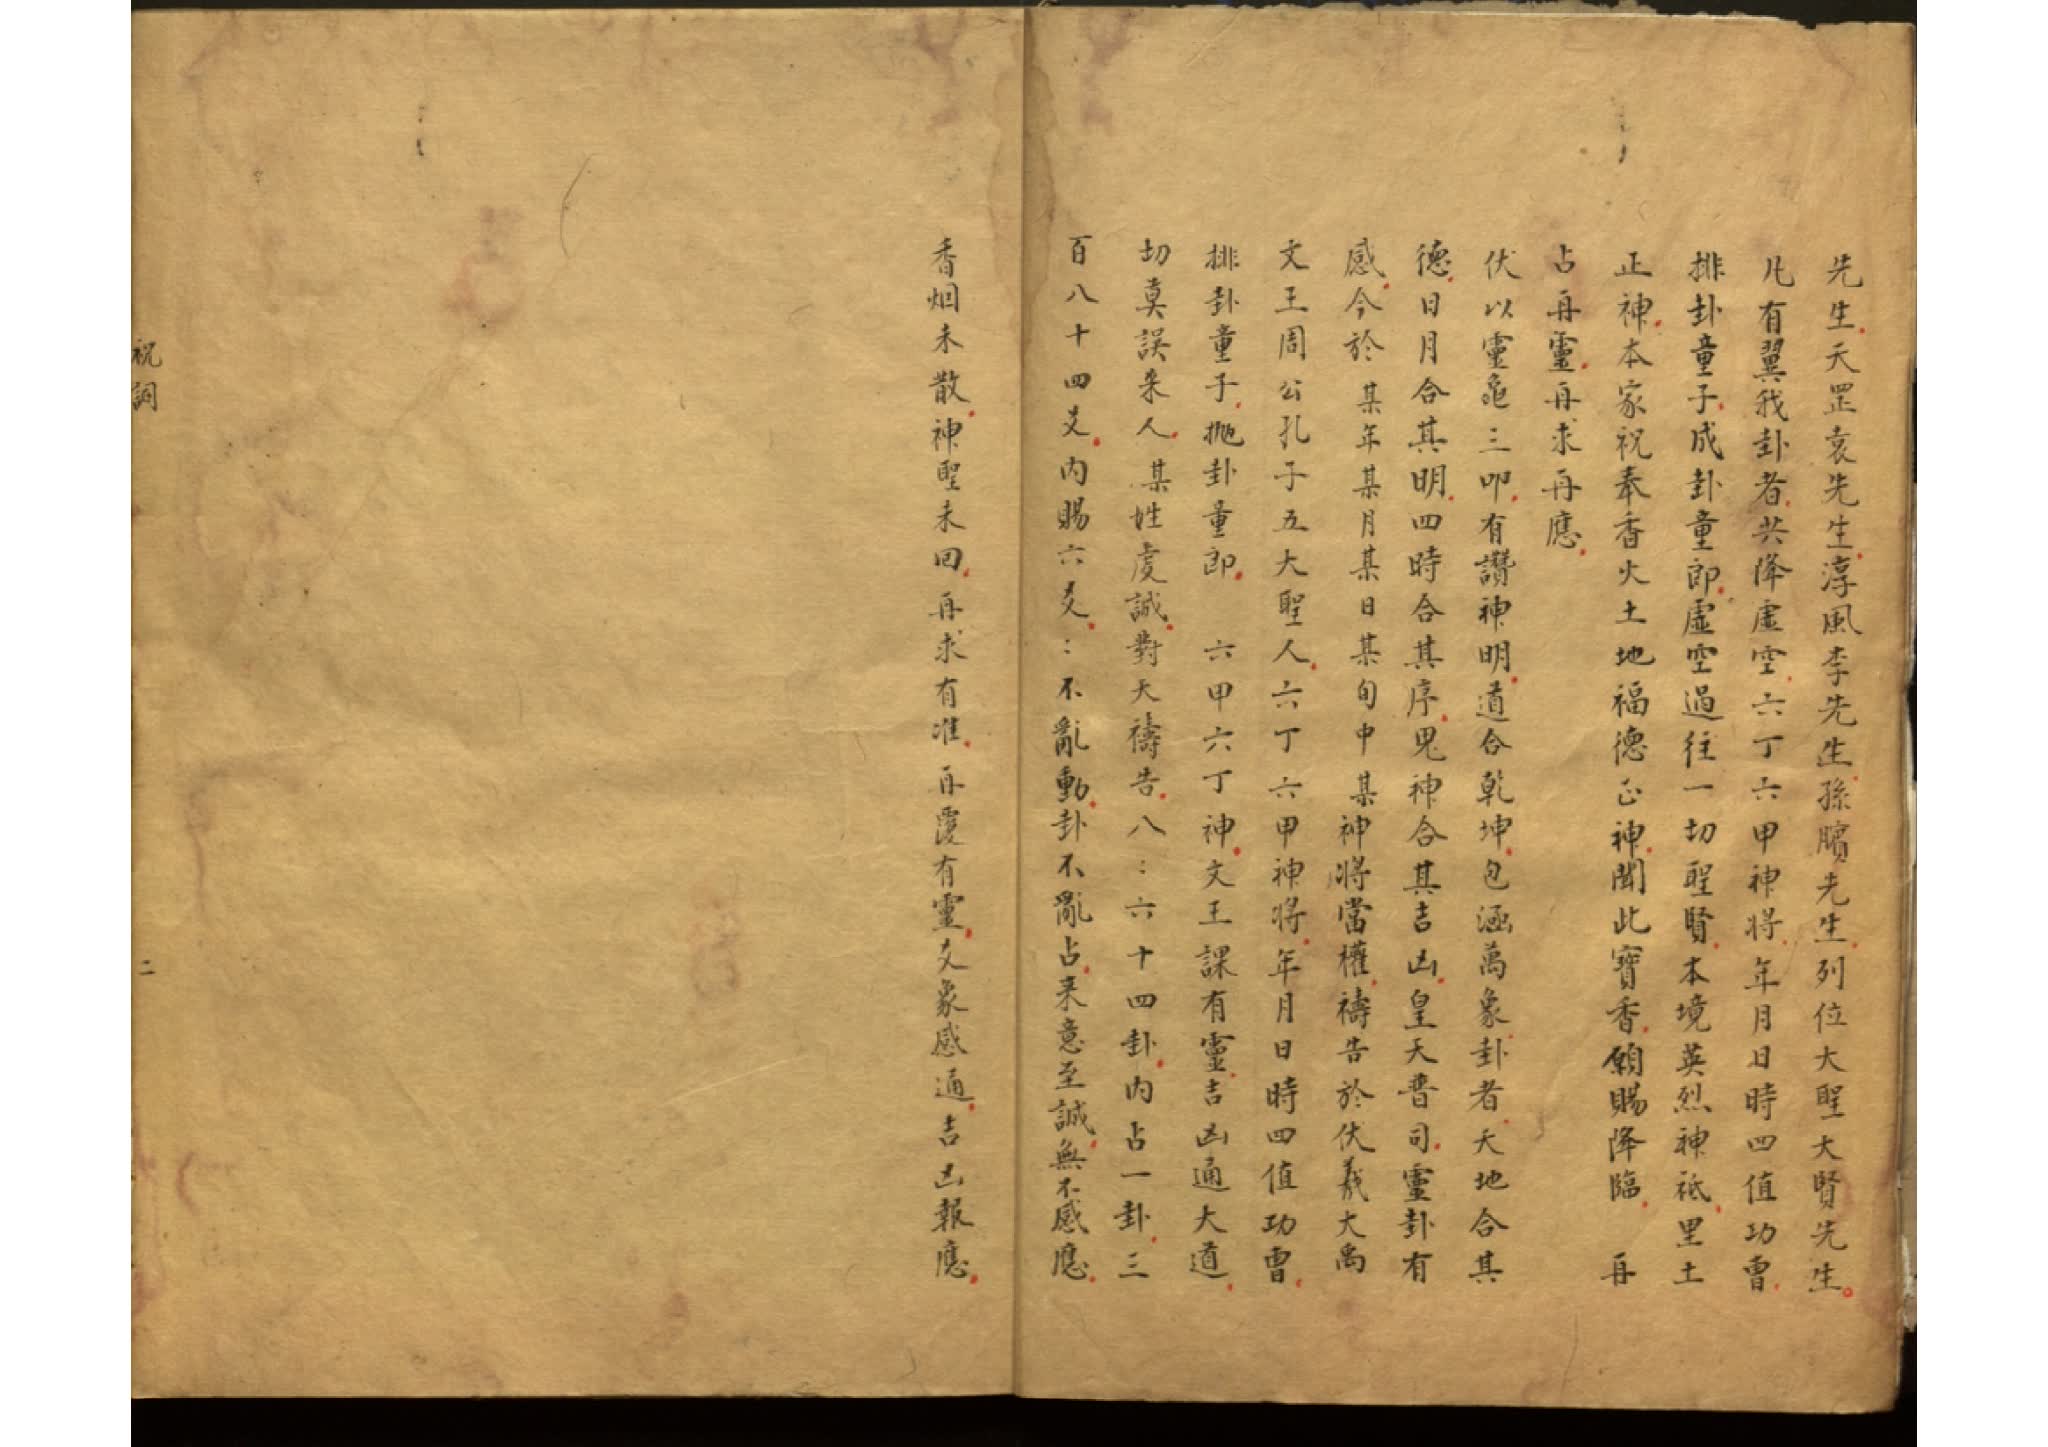 先生天罡袁先生淳風李先生孫臏先生列位大聖大賢先生
凡有翼我卦者共降虛空六丁六甲神將年月日時四值功曹
排卦童子成卦童郎虛空過往一切聖賢本境英烈神祇里土
正神本家祝奉香火土地福德正神聞此寶香願賜降臨　再
占再靈再求再應
伏以靈龜三叩有讚神明道合乾坤包涵萬象卦者天地合其
德日月合其明四時合其序鬼神合其吉凶皇天普司靈卦有
感今於某年某月某日某旬中某神將當權禱告於伏羲大禹
文王周公孔子五大聖人六丁六甲神將年月日時四值功曹
排卦童子抛卦童郎　六甲六丁神文王課有靈吉凶通大道
切莫誤來人某姓虔誠對天禱告八：六十四卦內占一卦三
百八十四爻內賜六爻：不亂動卦不亂占來意至誠無不感應
香烟未散神聖未回再求有准再覆有靈爻象感通吉凶報應
祝詞
二